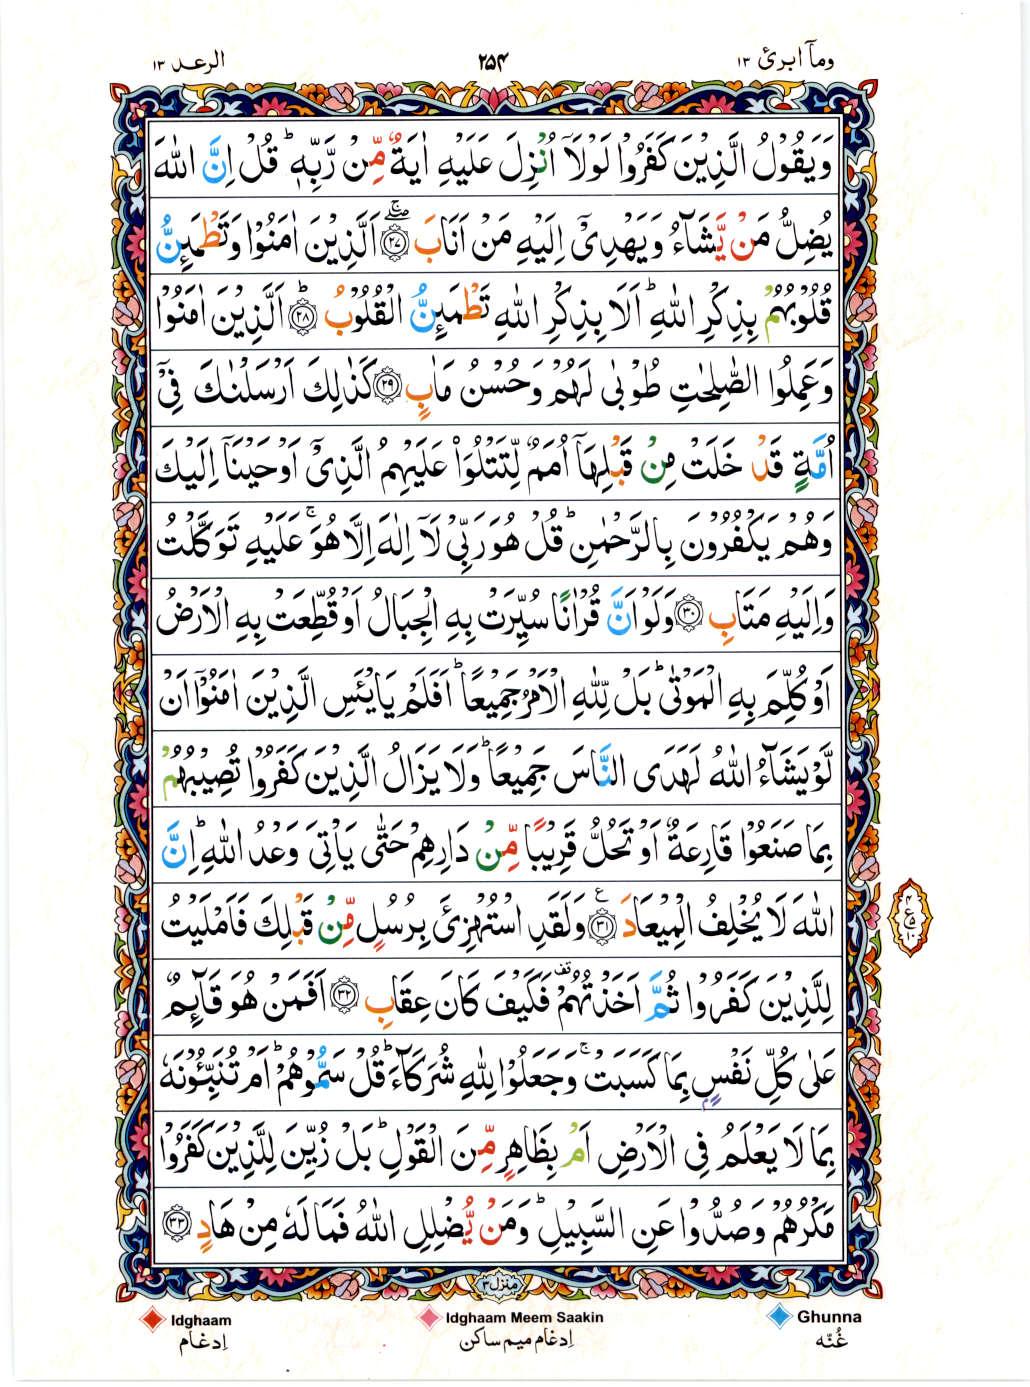 ومآ ابرئ ١٣
٢٥٤
الرعد ١٣
وَيَقُوْلُ الَّذِيْنَ كَفَرُوْا لَوْلَاۤ اُنْزِلَ عَلَيْهِ اٰيَةٌ مِّنْ رَّبِّهٖ ؕ قُلْ اِنَّ اللّٰهَ
يُضِلُّ مَنْ يَّشَآءُ وَيَهْدِيْۤ اِلَيْهِ مَنْ اَنَابَ ۖۚ‏﴿٢٧﴾ اَلَّذِيْنَ اٰمَنُوْا وَتَطْمَئِنُّ
قُلُوْبُهُمْ بِذِكْرِ اللّٰهِ ؕ اَلَا بِذِكْرِ اللّٰهِ تَطْمَئِنُّ الْقُلُوْبُ ؕ‏﴿٢٨﴾ اَلَّذِيْنَ اٰمَنُوْا
وَعَمِلُوا الصّٰلِحٰتِ طُوْبٰى لَهُمْ وَحُسْنُ مَاٰبٍ ﴿٢٩﴾ كَذٰلِكَ اَرْسَلْنٰكَ فِيْۤ
اُمَّةٍ قَدْ خَلَتْ مِنْ قَبْلِهَاۤ اُمَمٌ لِّتَتْلُوَا۟ عَلَيْهِمُ الَّذِيْۤ اَوْحَيْنَاۤ اِلَيْكَ
وَهُمْ يَكْفُرُوْنَ بِالرَّحْمٰنِ ؕ قُلْ هُوَ رَبِّيْ لَاۤ اِلٰهَ اِلَّا هُوَ ۚ عَلَيْهِ تَوَكَّلْتُ
وَاِلَيْهِ مَتَابِ ﴿٣٠﴾ وَلَوْ اَنَّ قُرْاٰنًا سُيِّرَتْ بِهِ الْجِبَالُ اَوْ قُطِّعَتْ بِهِ الْاَرْضُ
اَوْ كُلِّمَ بِهِ الْمَوْتٰى ؕ بَلْ لِّلّٰهِ الْاَمْرُ جَمِيْعًا ؕ اَفَلَمْ يَايْـَٔسِ الَّذِيْنَ اٰمَنُوْۤا اَنْ
لَّوْ يَشَآءُ اللّٰهُ لَهَدَى النَّاسَ جَمِيْعًا ؕ وَلَا يَزَالُ الَّذِيْنَ كَفَرُوْا تُصِيْبُهُمْ
بِمَا صَنَعُوْا قَارِعَةٌ اَوْ تَحُلُّ قَرِيْبًا مِّنْ دَارِهِمْ حَتّٰى يَاْتِيَ وَعْدُ اللّٰهِ ؕ اِنَّ
اللّٰهَ لَا يُخْلِفُ الْمِيْعَادَ ﴿٣١﴾ ع وَلَقَدِ اسْتُهْزِئَ بِرُسُلٍ مِّنْ قَبْلِكَ فَاَمْلَيْتُ
لِلَّذِيْنَ كَفَرُوْا ثُمَّ اَخَذْتُهُمْ قف فَكَيْفَ كَانَ عِقَابِ ﴿٣٢﴾ اَفَمَنْ هُوَ قَآئِمٌ
عَلٰى كُلِّ نَفْسٍۢ بِمَا كَسَبَتْ ۚ وَجَعَلُوْا لِلّٰهِ شُرَكَآءَ ؕ قُلْ سَمُّوْهُمْ ؕ اَمْ تُنَبِّـُٔوْنَهٗ
بِمَا لَا يَعْلَمُ فِي الْاَرْضِ اَمْ بِظَاهِرٍ مِّنَ الْقَوْلِ ؕ بَلْ زُيِّنَ لِلَّذِيْنَ كَفَرُوْا
مَكْرُهُمْ وَصُدُّوْا عَنِ السَّبِيْلِ ؕ وَمَنْ يُّضْلِلِ اللّٰهُ فَمَا لَهٗ مِنْ هَادٍ ﴿٣٣﴾
منزل ٣
Idghaam
اِدغام
Idghaam Meem Saakin
اِدغام میم ساکن
Ghunna
غُنّه